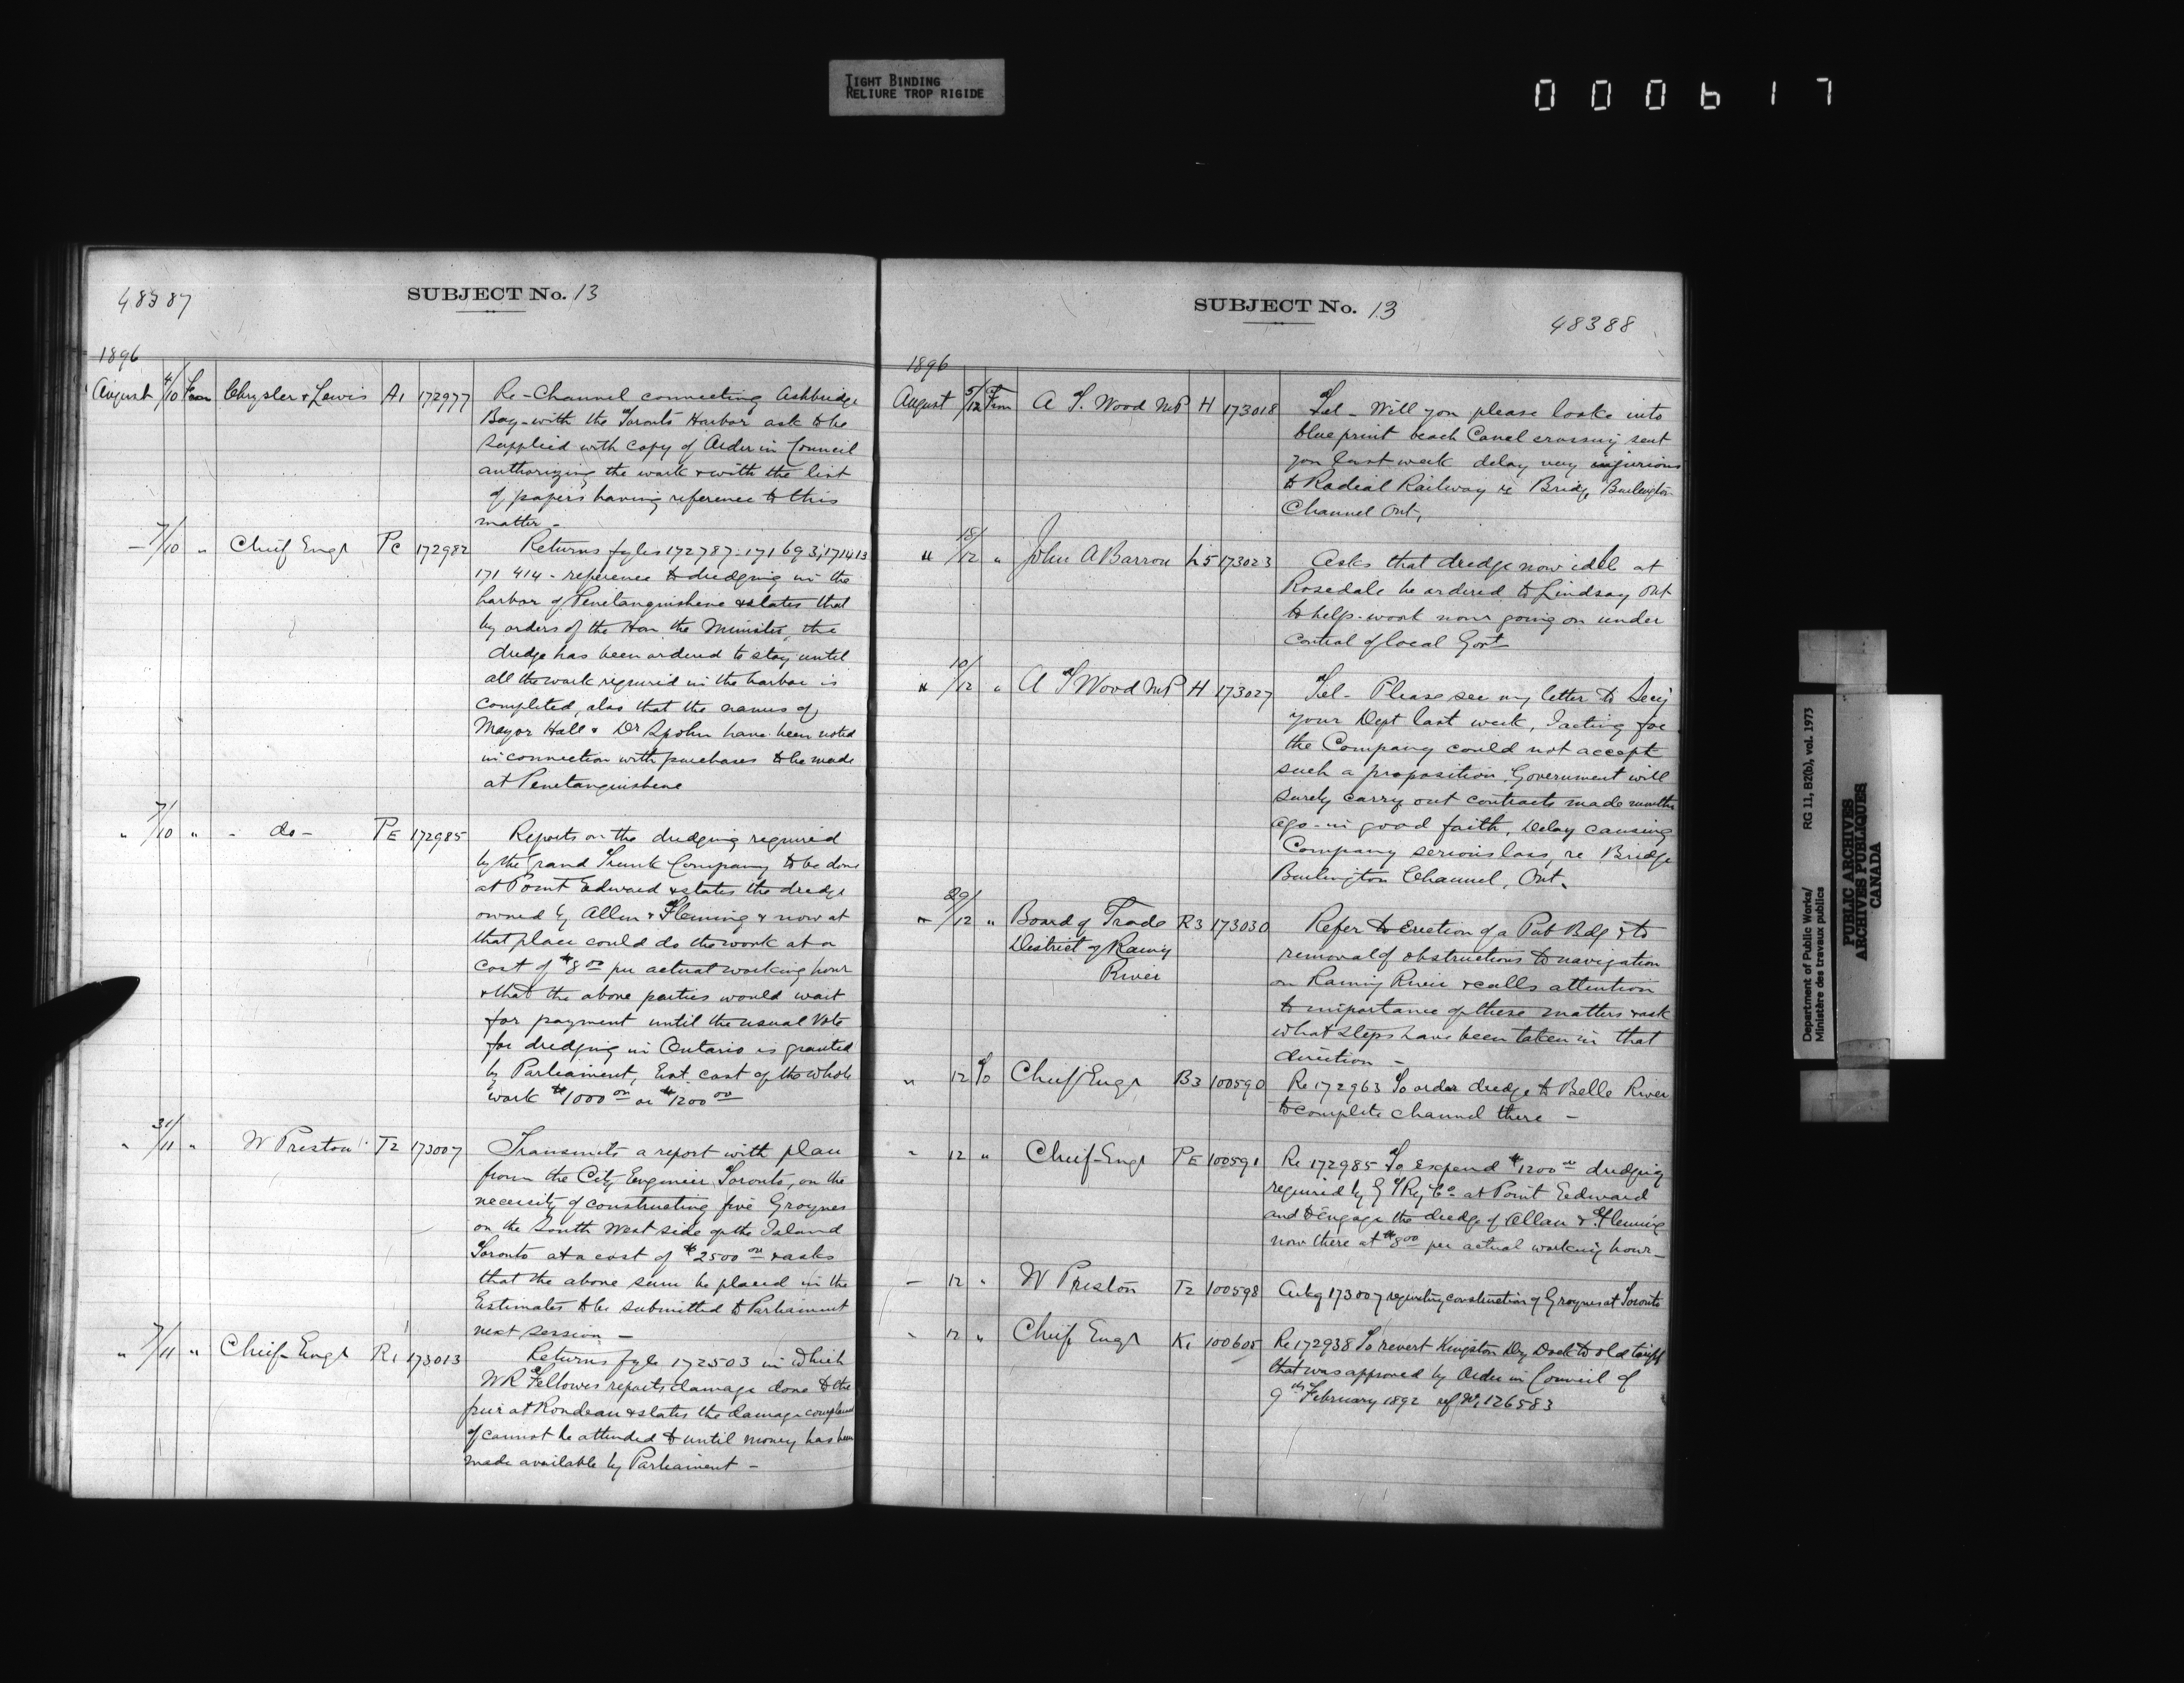 TIGHT BINDING
RELIURE TROP RIGIDE
000617
48387
SUBJECT No. 13
1896
August 4/10 From Chrysler & Lewis A1 172977 Re-Channel connecting Ashbridge
Bay with the Toronto Harbor ask to be
supplied with copy of Order in Council
authorizing the work & with the list
of papers having reference to this
matter -
— 7/10 " Chief Engr Pc 172982 Returns fyles 172787-171693; 171413
171414 - reference to dredging in the
harbor of Penetanguishene & states that
by orders of the Hon the Minister, the
dredge has been ordered to stay until
all the work required in the harbor is
completed, also that the names of
Mayor Hall & Dr Spohn have been noted
in connection with purchases to be made
at Penetanguishene
" 7/10 " - do - PE 172985 Reports on the dredging required
by the Grand Trunk Company to be done
at Point Edward & states the dredge
owned by Allen & Fleming & now at
that place could do the work at a
cost of $8 00 per actual working hour
& that the above parties would wait
for payment until the usual Vote
for dredging in Ontario is granted
by Parliament, Est. cost of the whole
work $1000 00 or $1200 00
" 31/11 " W Preston T2 173007 Transmits a report with plan
from the City Engineer Toronto, on the
necessity of constructing five Groynes
on the South West side of the Island
Toronto at a cost of $2500 00 & asks
that the above sum be placed in the
Estimates to be submitted to Parliament
next session —
" 7/11 " Chief Engr R1 173013 Returns fyle 172503 in which
WR Fellowes reports damage done to the
pier at Rondeau & states the damage complained
of cannot be attended to until money has been
made available by Parliament —
SUBJECT No. 13
48388
1896
August 5/12 From A T. Wood MP H 173018 Tel - Will you please looke into
blue print beach Canal crossing sent
you last week delay very injurious
to Radial Railway re Bridge Burlington
Channel Ont,
" 18/12 " John A Barron L5 173023 Asks that dredge now idle at
Rosedale be ordered to Lindsay Ont
to help work now going on under
control of local Govt
" 10/12 " A T Wood MP H 173027 Tel - Please see my letter to Secy
your Dept last week, I acting for
the Company could not accept
such a proposition. Government will
surely carry out contracts made months
ago - in good faith, Delay causing
Company serious loss, re Bridge
Burlington Channel, Ont.
" 29/12 " Board of Trade R3 173030 Refer to Erection of a Pub Bdg & to
District of Rainy
River
removal of obstructions to navigation
on Rainy River & calls attention
to importance of these matters & ask
what steps have been taken in that
direction —
" 12 To Chief Engr B3 100590 Re 172963 To order dredge to Belle River
to complete channel there —
" 12 " Chief Engr PE 100591 Re 172985 To expend $1200 00 dredging
required by G T Ry Co at Point Eedward
and to engage the dredge of Allan & Fleming
now there at $8 00 per actual working hour —
— 12 " W Preston T2 100598 Ackg 173007 requesting construction of Groynes at Toronto
" 12 " Chief Engr K1 100605 Re 172938 To revert Kingston Dry Dock to old tariff
that was approved by Order in Council of
9th February 1892 ref No 126583
Department of Public Works/
Ministère des travaux publics
RG 11, B2(b), vol. 1973
PUBLIC ARCHIVES
ARCHIVES PUBLIQUES
CANADA